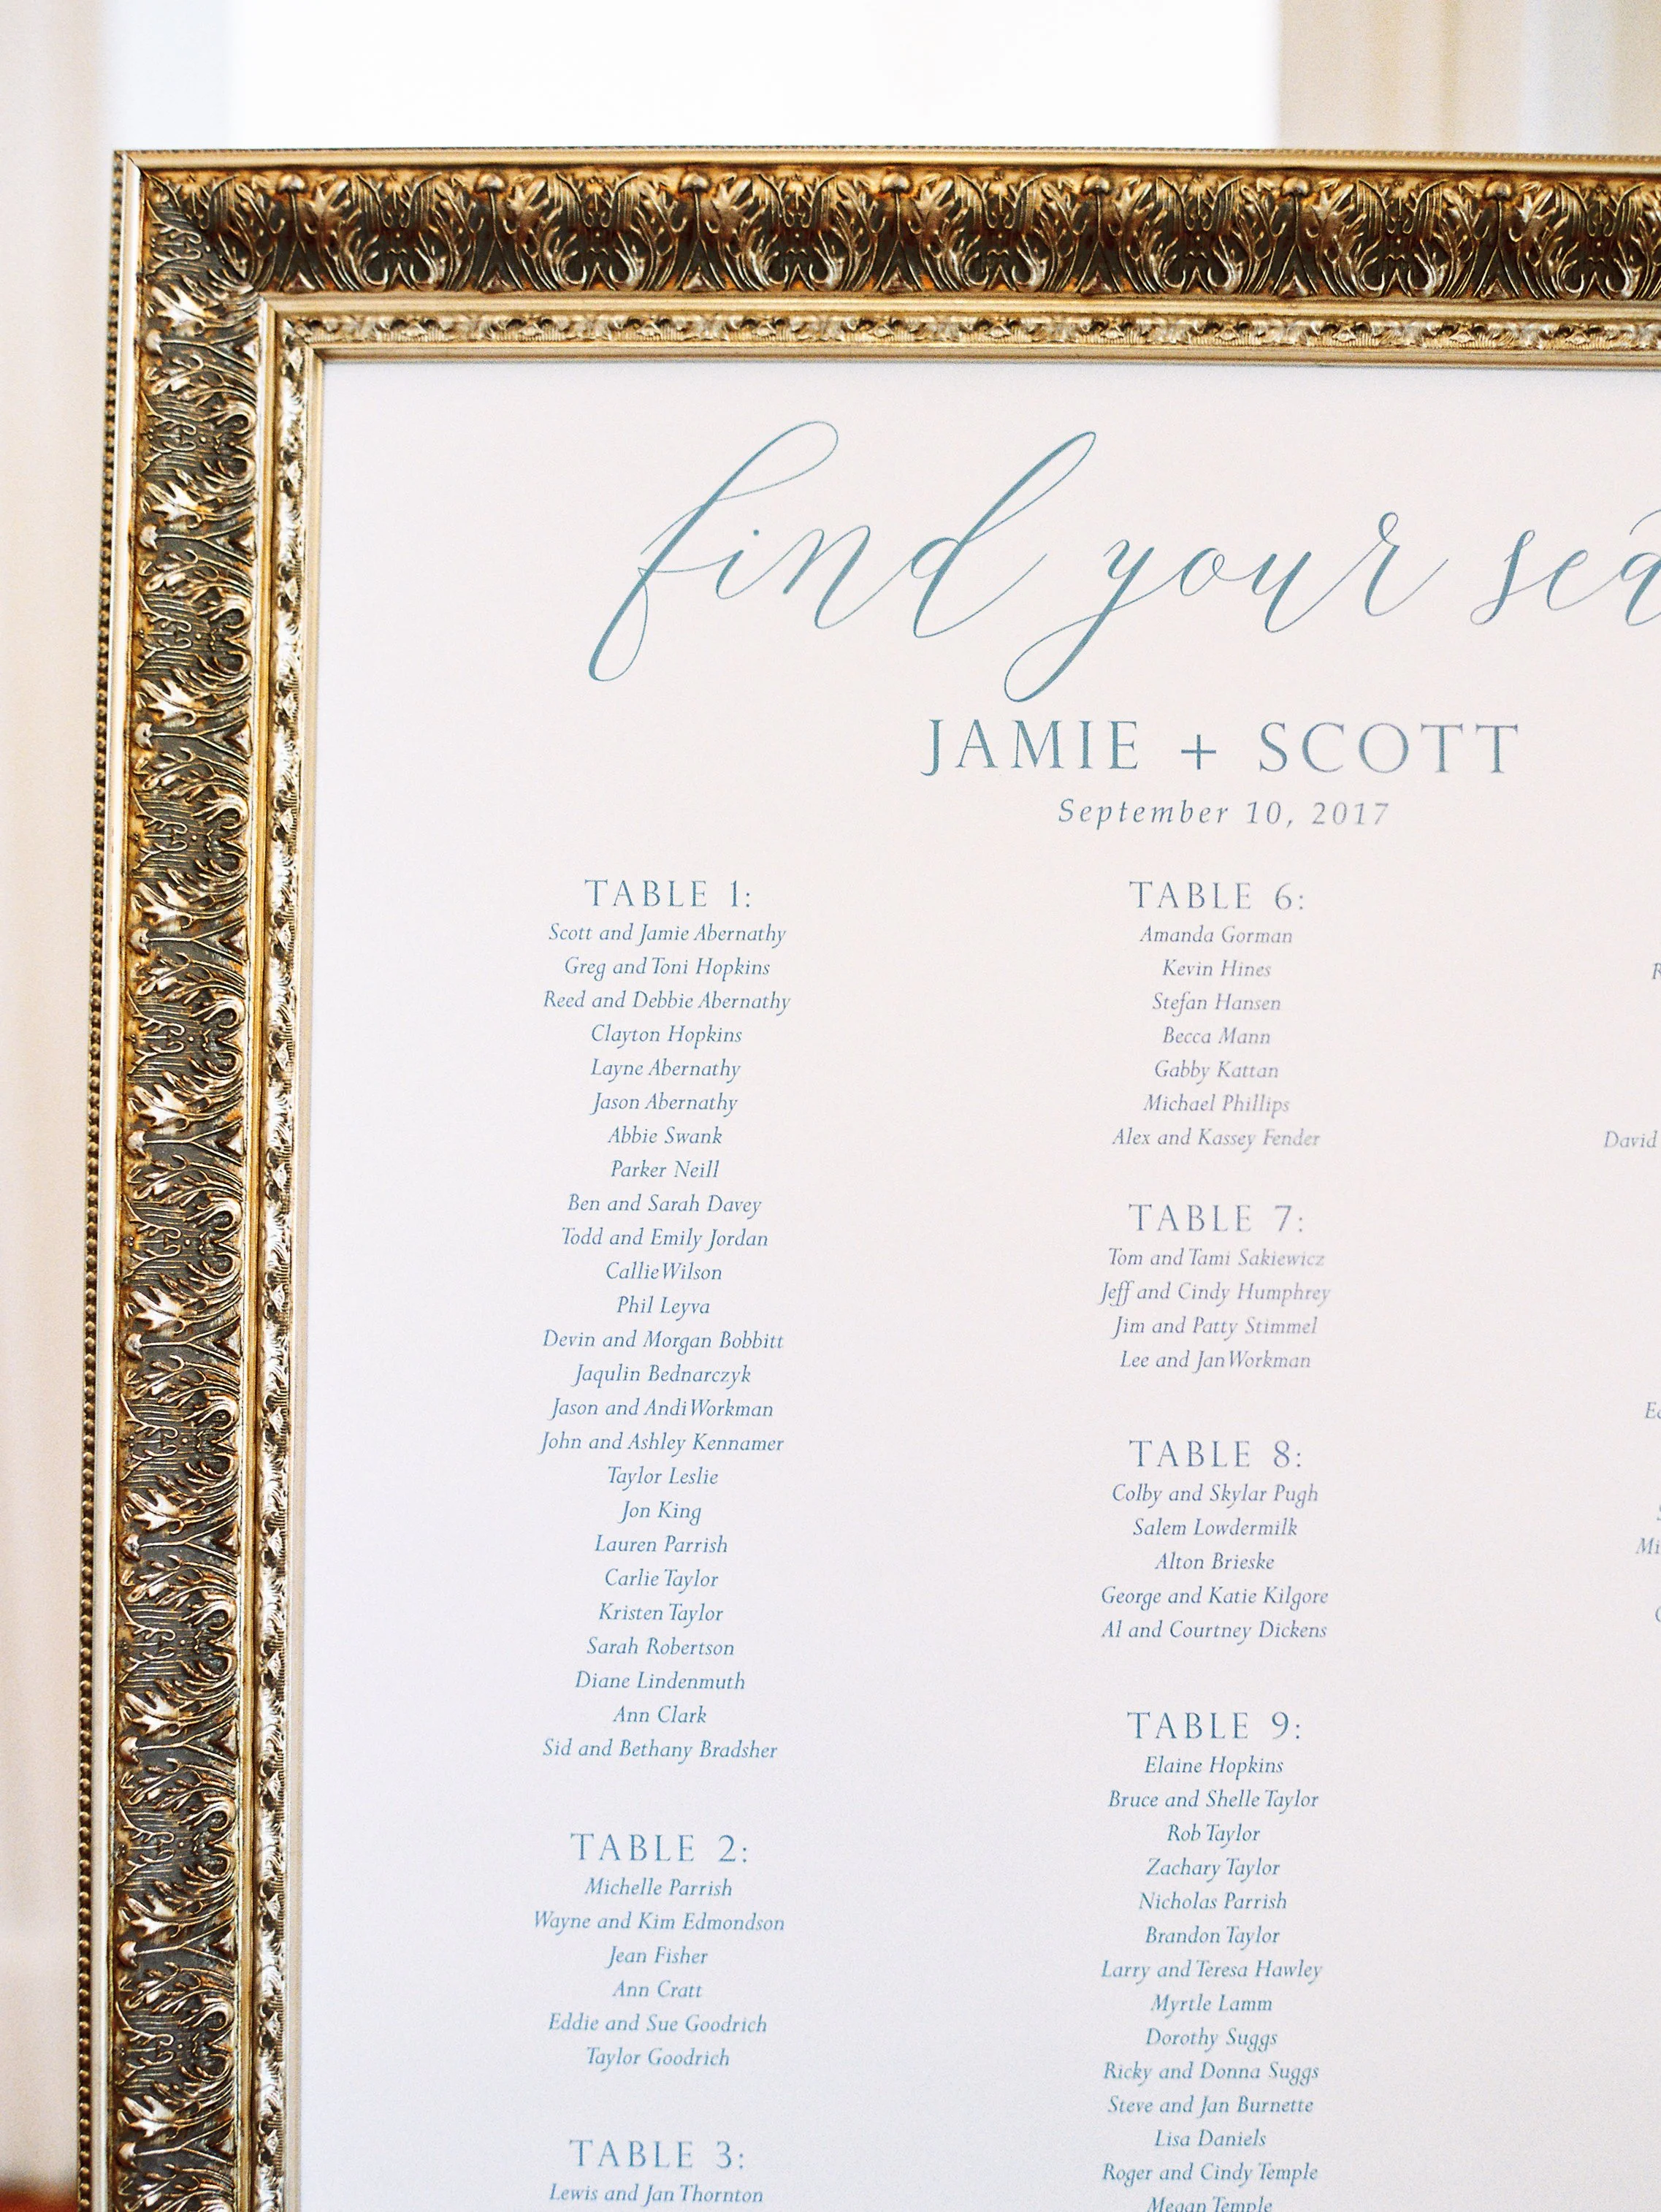 find your
JAMIE + SCOTT
September 10, 2017
TABLE 1:
Scott and Jamie Abernathy
Greg and Toni Hopkins
Reed and Debbie Abernathy
Clayton Hopkins
Layne Abernathy
Jason Abernathy
Abbie Swank
Parker Neill
Ben and Sarah Davey
Todd and Emily Jordan
Callie Wilson
Phil Leyva
Devin and Morgan Bobbitt
Jaqulin Bednarczyk
Jason and Andi Workman
John and Ashley Kennamer
Taylor Leslie
Jon King
Lauren Parrish
Carlie Taylor
Kristen Taylor
Sarah Robertson
Diane Lindenmuth
Ann Clark
Sid and Bethany Bradsher
TABLE 2:
Michelle Parrish
Wayne and Kim Edmondson
Jean Fisher
Ann Cratt
Eddie and Sue Goodrich
Taylor Goodrich
TABLE 3:
Lewis and Jan Thornton
TABLE 6:
Amanda Gorman
Kevin Hines
Stefan Hansen
Becca Mann
Gabby Kattan
Michael Phillips
Alex and Kassey Fender
TABLE 7:
Tom and Tami Sakiewicz
Jeff and Cindy Humphrey
Jim and Patty Stimmel
Lee and Jan Workman
TABLE 8:
Colby and Skylar Pugh
Salem Lowdermilk
Alton Brieske
George and Katie Kilgore
Al and Courtney Dickens
TABLE 9:
Elaine Hopkins
Bruce and Shelle Taylor
Rob Taylor
Zachary Taylor
Nicholas Parrish
Brandon Taylor
Larry and Teresa Hawley
Myrtle Lamm
Dorothy Suggs
Ricky and Donna Suggs
Steve and Jan Burnette
Lisa Daniels
Roger and Cindy Temple
Megan Temple
David